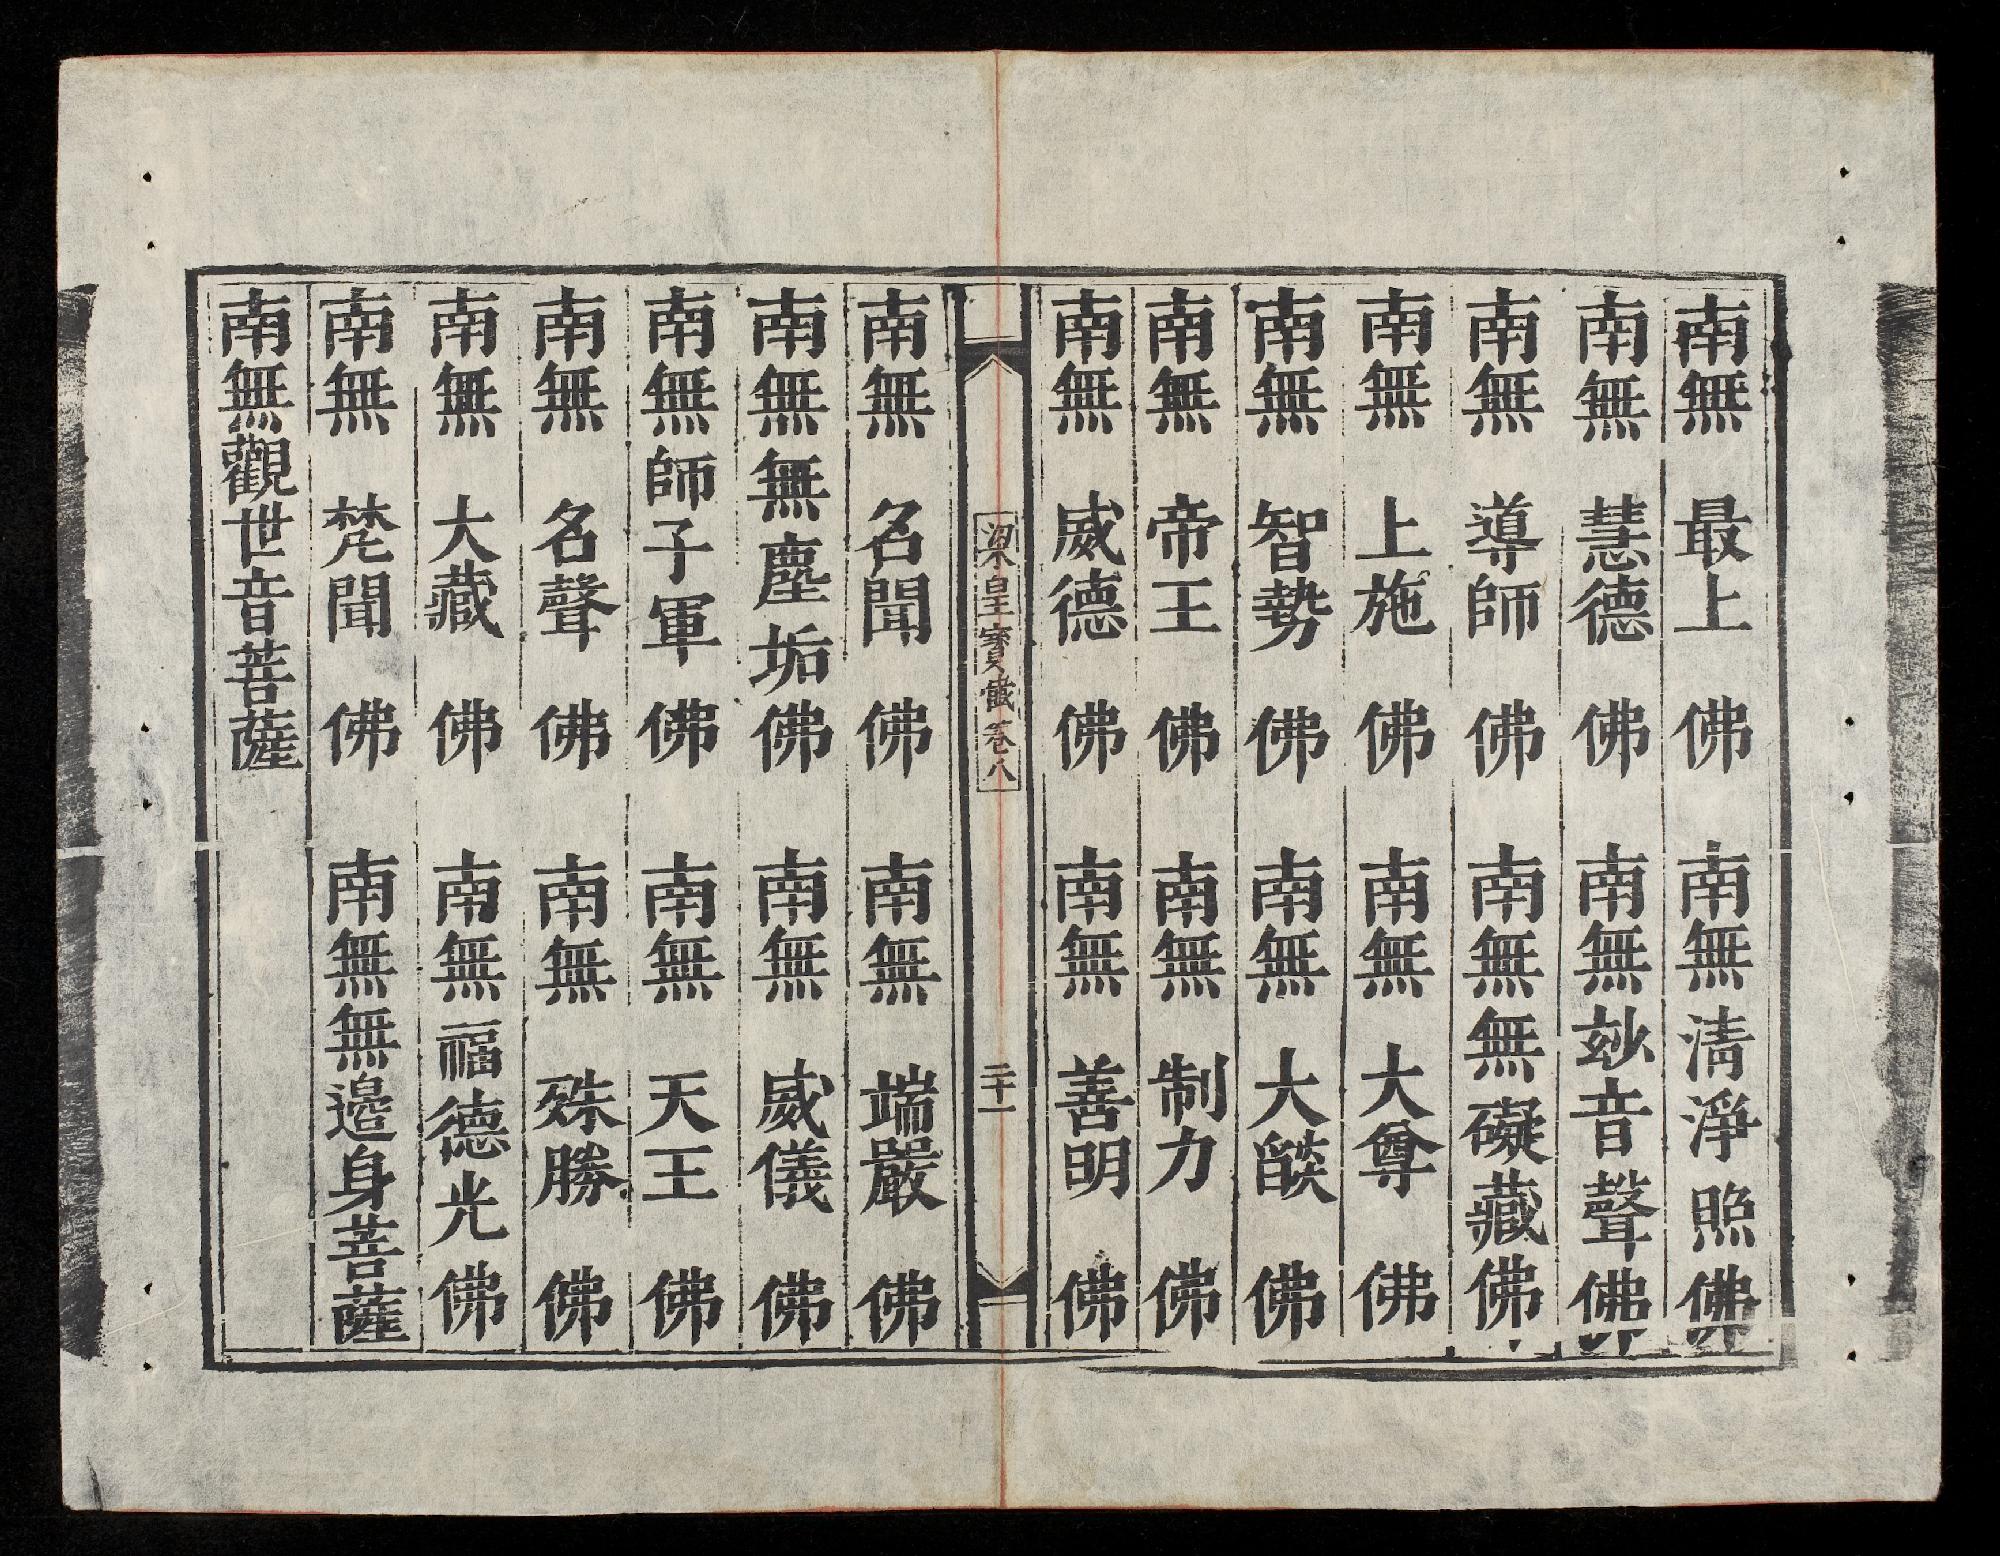 南無最上佛南無清淨照佛
南無慧德佛南無玅音聲佛
南無導師佛南無無礙藏佛
南無上施佛南無大尊佛
南無智勢佛南無大燄佛
南無帝王佛南無制力佛
南無威德佛南無善明佛
梁皇寶懺卷八
二十一
南無名聞佛南無端嚴佛
南無無塵垢佛南無威儀佛
南無師子軍佛南無天王佛
南無名聲佛南無殊勝佛
南無大藏佛南無福德光佛
南無梵聞佛南無無邊身菩薩
南無觀世音菩薩